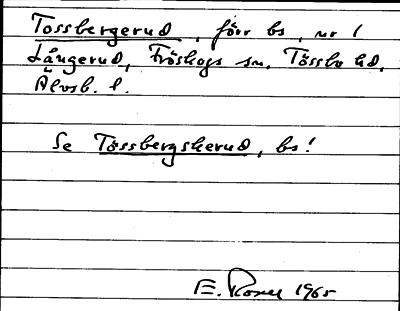 Tossbergerud, förr bs, nr 1
Långerud, Fröskogs sn, Tössbo hd,
Älvsb. l.
Se Tössbergskerud, bs!
E. Rosell 1965